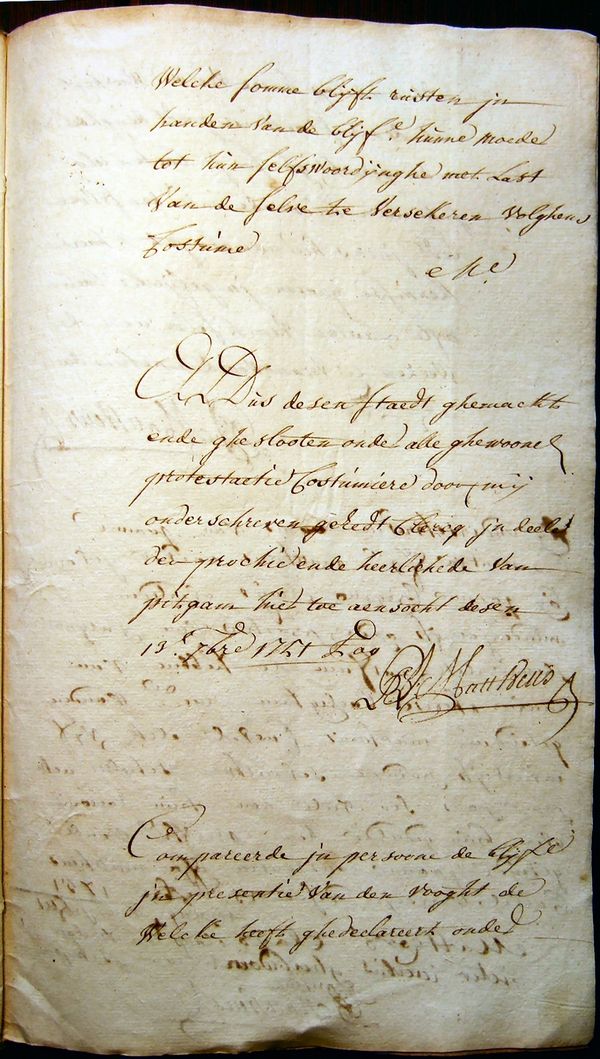 Welcke somme blijft rusten jn
handen van de blijf.e hunne moeder
tot hun selfswoordijnghe met Last
Van de selve te Versekeren volghens
Costume
Dus desen staedt ghemaeckt
ende ghesslooten onder alle ghewoonel
protestactie Costumiere door mij
onderschreven gehedt Clercq jn deele
der prochie ende heerlichede van
pitgam hier toe aensocht desen
13.e 7bre 1751
Mattheus
Compareerde jn persoone de blijf.e
jn presentie Van den vooght de
Welcke heeft ghedeclareert onder